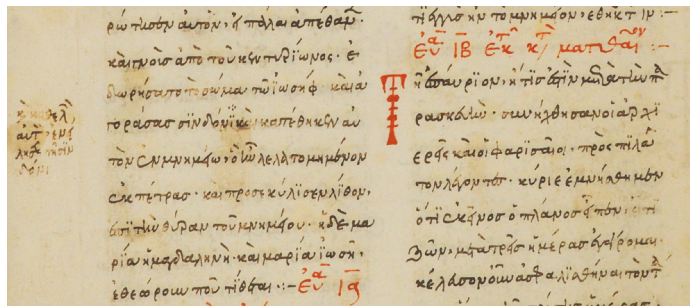 ρώτησεν αὐτὸν, εἰ πάλαι ἀπέθαν·
καὶ γνοὺς ἀπὸ τοῦ κεντυρίωνος· ἐ
δωρήσατο τὸ σῶμα τῶ ἰωσήφ· καὶ ἀ
γοράσας σινδόνα καὶ κατέθηκεν αὐ
τὸν ἐν μνημείω, ὃ ἦν λελατομημένον
ἐκ πέτρας· καὶ προσεκύλισεν λίθον,
ἐπὶ τὴν θύραν τοῦ μνημείου· ἡ δὲ μα
ρία ἡ μαγδαληνὴ· καὶ μαρία ἰωσῆ,
ἐθεώρουν ποῦ τίθεται :– Εὐα
τὸ μνημεῖον,
Εὐα ΙΒ ἐκ τ κτ ματθαῖου :–
Τῆ ἐπαύριον, ἥτις ἐστὶν μετὰ τὴν πα
ρασκευὴν· συνήχθησαν οἱ ἀρχι
ερεῖς καὶ οἱ φαρισαῖοι· πρὸς πιλᾶ
τον λέγοντες· κύριε ἐμνήσθημεν
ὅτι ἐκεῖνος ὁ πλάνος εἶπεν, ἔτι
ζῶν, μετὰ τρεῖς ἡμέρας ἐγείρομαι·
κέλευσον οὖν ἀσφαλισθῆναι τὸν τ